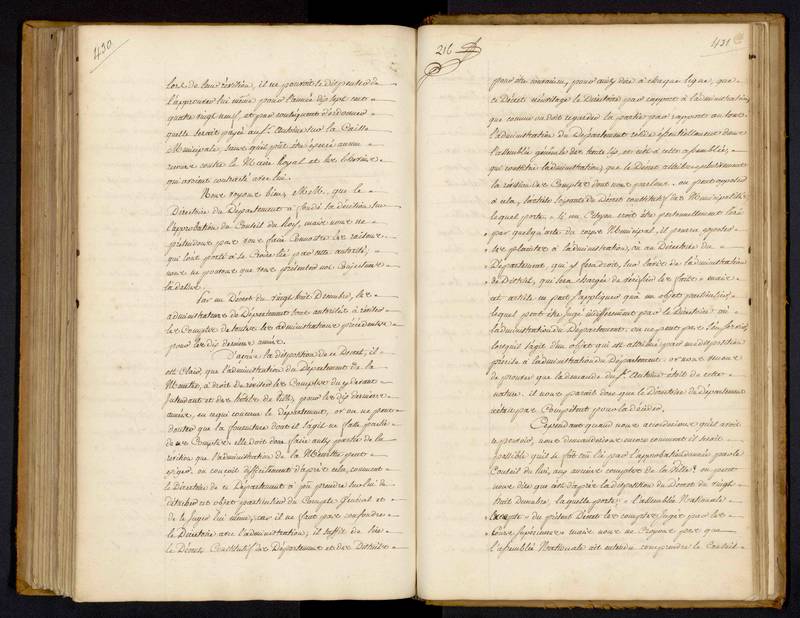 430
lors de leur révision, il ne pouvoit se dispenser de
l'approuver lui même pour l'année dix sept cent
quatre vingt neuf, et par conséquent d'ordonner
quelle seroit payée au S.r Antoine sur la Caisse
Municipale, sans quil pût être exercé aucun
recours contre le Maire Royal et les
qui avoient contracté avec lui.
Nous voyons bien, MM., que le
Directoire du Département a fondé sa décision sur
l'approbation du Conseil du Roy, mais nous ne
prétendons pas vous faire Connoître les raisons
qui l'ont porté à se Croire lié par cette autorité,
nous ne pouvons que vous présenter nos Conjectures
là dessus.
Par un Décret du vingt huit Décembre, les
administrateurs de Département sont autorisés à réviser
les Comptes de toutes les administrations précédentes
pour les dix dernières années.
D'après la disposition de ce Décret, il
est Clair, que l'administration du Département de la
Meurthe, a droit de réviser les Comptes du cydevant
Intendant et des hôtels de Ville, pour les dix dernières
années, en ce qui concerne le département, or on ne peut
douter que la fourniture dont il s'agit ne fasse partie
de ces Comptes. elle doit donc faire aussi partie de la
révision que l'administration de la Meurthe peut
exiger. on conçoit difficilement d'après cela, comment
le Directoire de ce Département a pû prendre sur lui de
détacher cet objet particulier du Compte Général et
de le Juger lui même; car il ne faut pas confondre
le Directoire avec l'administration, il suffit de lire
le Décret Constitutif des Départements et des Districts
216
431
pour être convaincu, pour ainsi dire à chaque ligne, que
ce Décret n'envisage le Directoire par rapport à l'administration
que comme on doit regarder la partie par rapport au tout.
l'administration du Département réside essentiellement dans
l'assemblée générale des trente six, et c'est à cette assemblée,
qui constitue l'administration, que le Décret attribue
la révision des Comptes dont nous parlons. on peut opposer
à cela, l'article soixante du décret constitutif des Municipalités
lequel porte, « si un Citoyen croit être personnellement lésé
» par quelqu'acte du corps Municipal, il pourra exposer
» ses plaintes à l'administration, ou au Directoire du
» Département, qui y fera droit, sur l'avis de l'administration
» de District, qui sera chargée de vérifier les faits » mais
cet article ne peut s'appliquer qu'à un objet particulier,
lequel peut être Jugé indifféremment par le Directoire ou
l'administration du Département. on ne peut pas s'en servir,
lorsqu'il s'agit d'un objet qui est attribué par une disposition
précise à l'administration du Département. or nous venons
de prouver que la demande du S.r Antoine étoit de cette
nature. il nous paroît donc que le Directoire du Département
n'étoit pas Compétent pour la décider.
Cependant quand nous accorderions qu'il avoit
ce pouvoir, nous demanderions encore comment il seroit
possible quil se fût cru lié par l'approbation donnée par le
Conseil du Roi, aux anciens comptes de la Ville? on peut
nous dire que c'est d'après la disposition du Décret du vingt
huit Décembre, laquelle porte: « l'assemblée Nationale
» excepte » du présent Décret les comptes Jugés par les
» Cours Supérieures » mais nous ne croyons pas que
l'assemblée Nationale ait entendu comprendre le Conseil